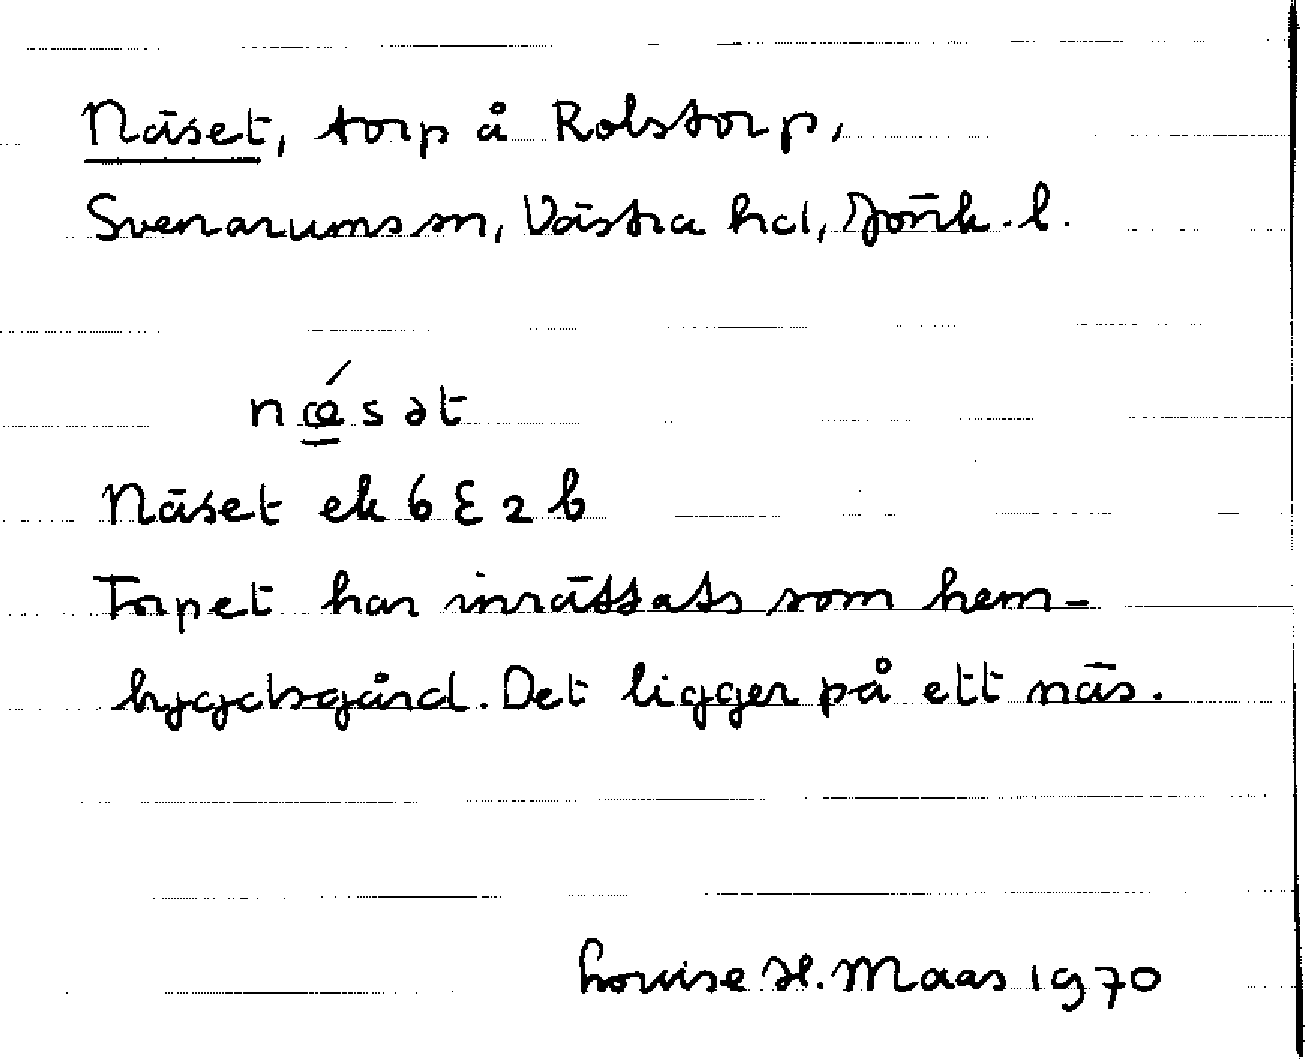 Näset, torp å Rolstorp,
Svenarums sn, Västra hd, Jönk. l.
nǽ̱sət
Näset ek 6 E 2 b
Torpet har inrättats som hem-
bygdsgård. Det ligger på ett näs.
Louise H. Maas 1970